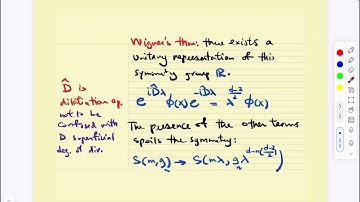 Wigner's thm: there exists a
unitary representation of this
symmetry group ℝ.
e^{iD̂λ} φ(x) e^{-iD̂λ} = λ^{\frac{d-2}{2}} φ(x)
D̂ is
dilitation op.
not to be
confused with
D superficial
deg. of div.
The presence of the other terms
spoils the symmetry:
S(m,g) → S(mλ, gλ^{d-n(\frac{d-2}{2})})